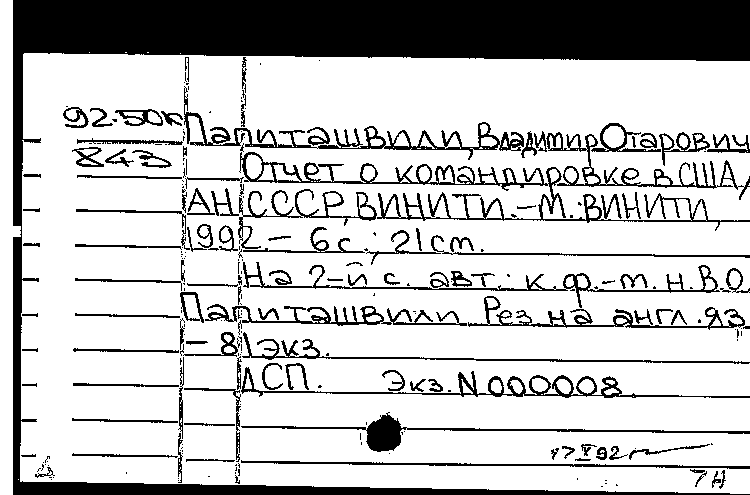 92-50к Папиташвили, Владимир Отарович
843 Отчет о командировке в США/
АН СССР, ВИНИТИ.-М.: ВИНИТИ,
1992.- 6 с.; 21 cm.
На 2-й с. авт.: к.ф.-м.н. В.О.
Папиташвили. Рез. на англ. яз.
- 81 экз.
ДСП. Экз. N 000008.
17 V 92
7Н